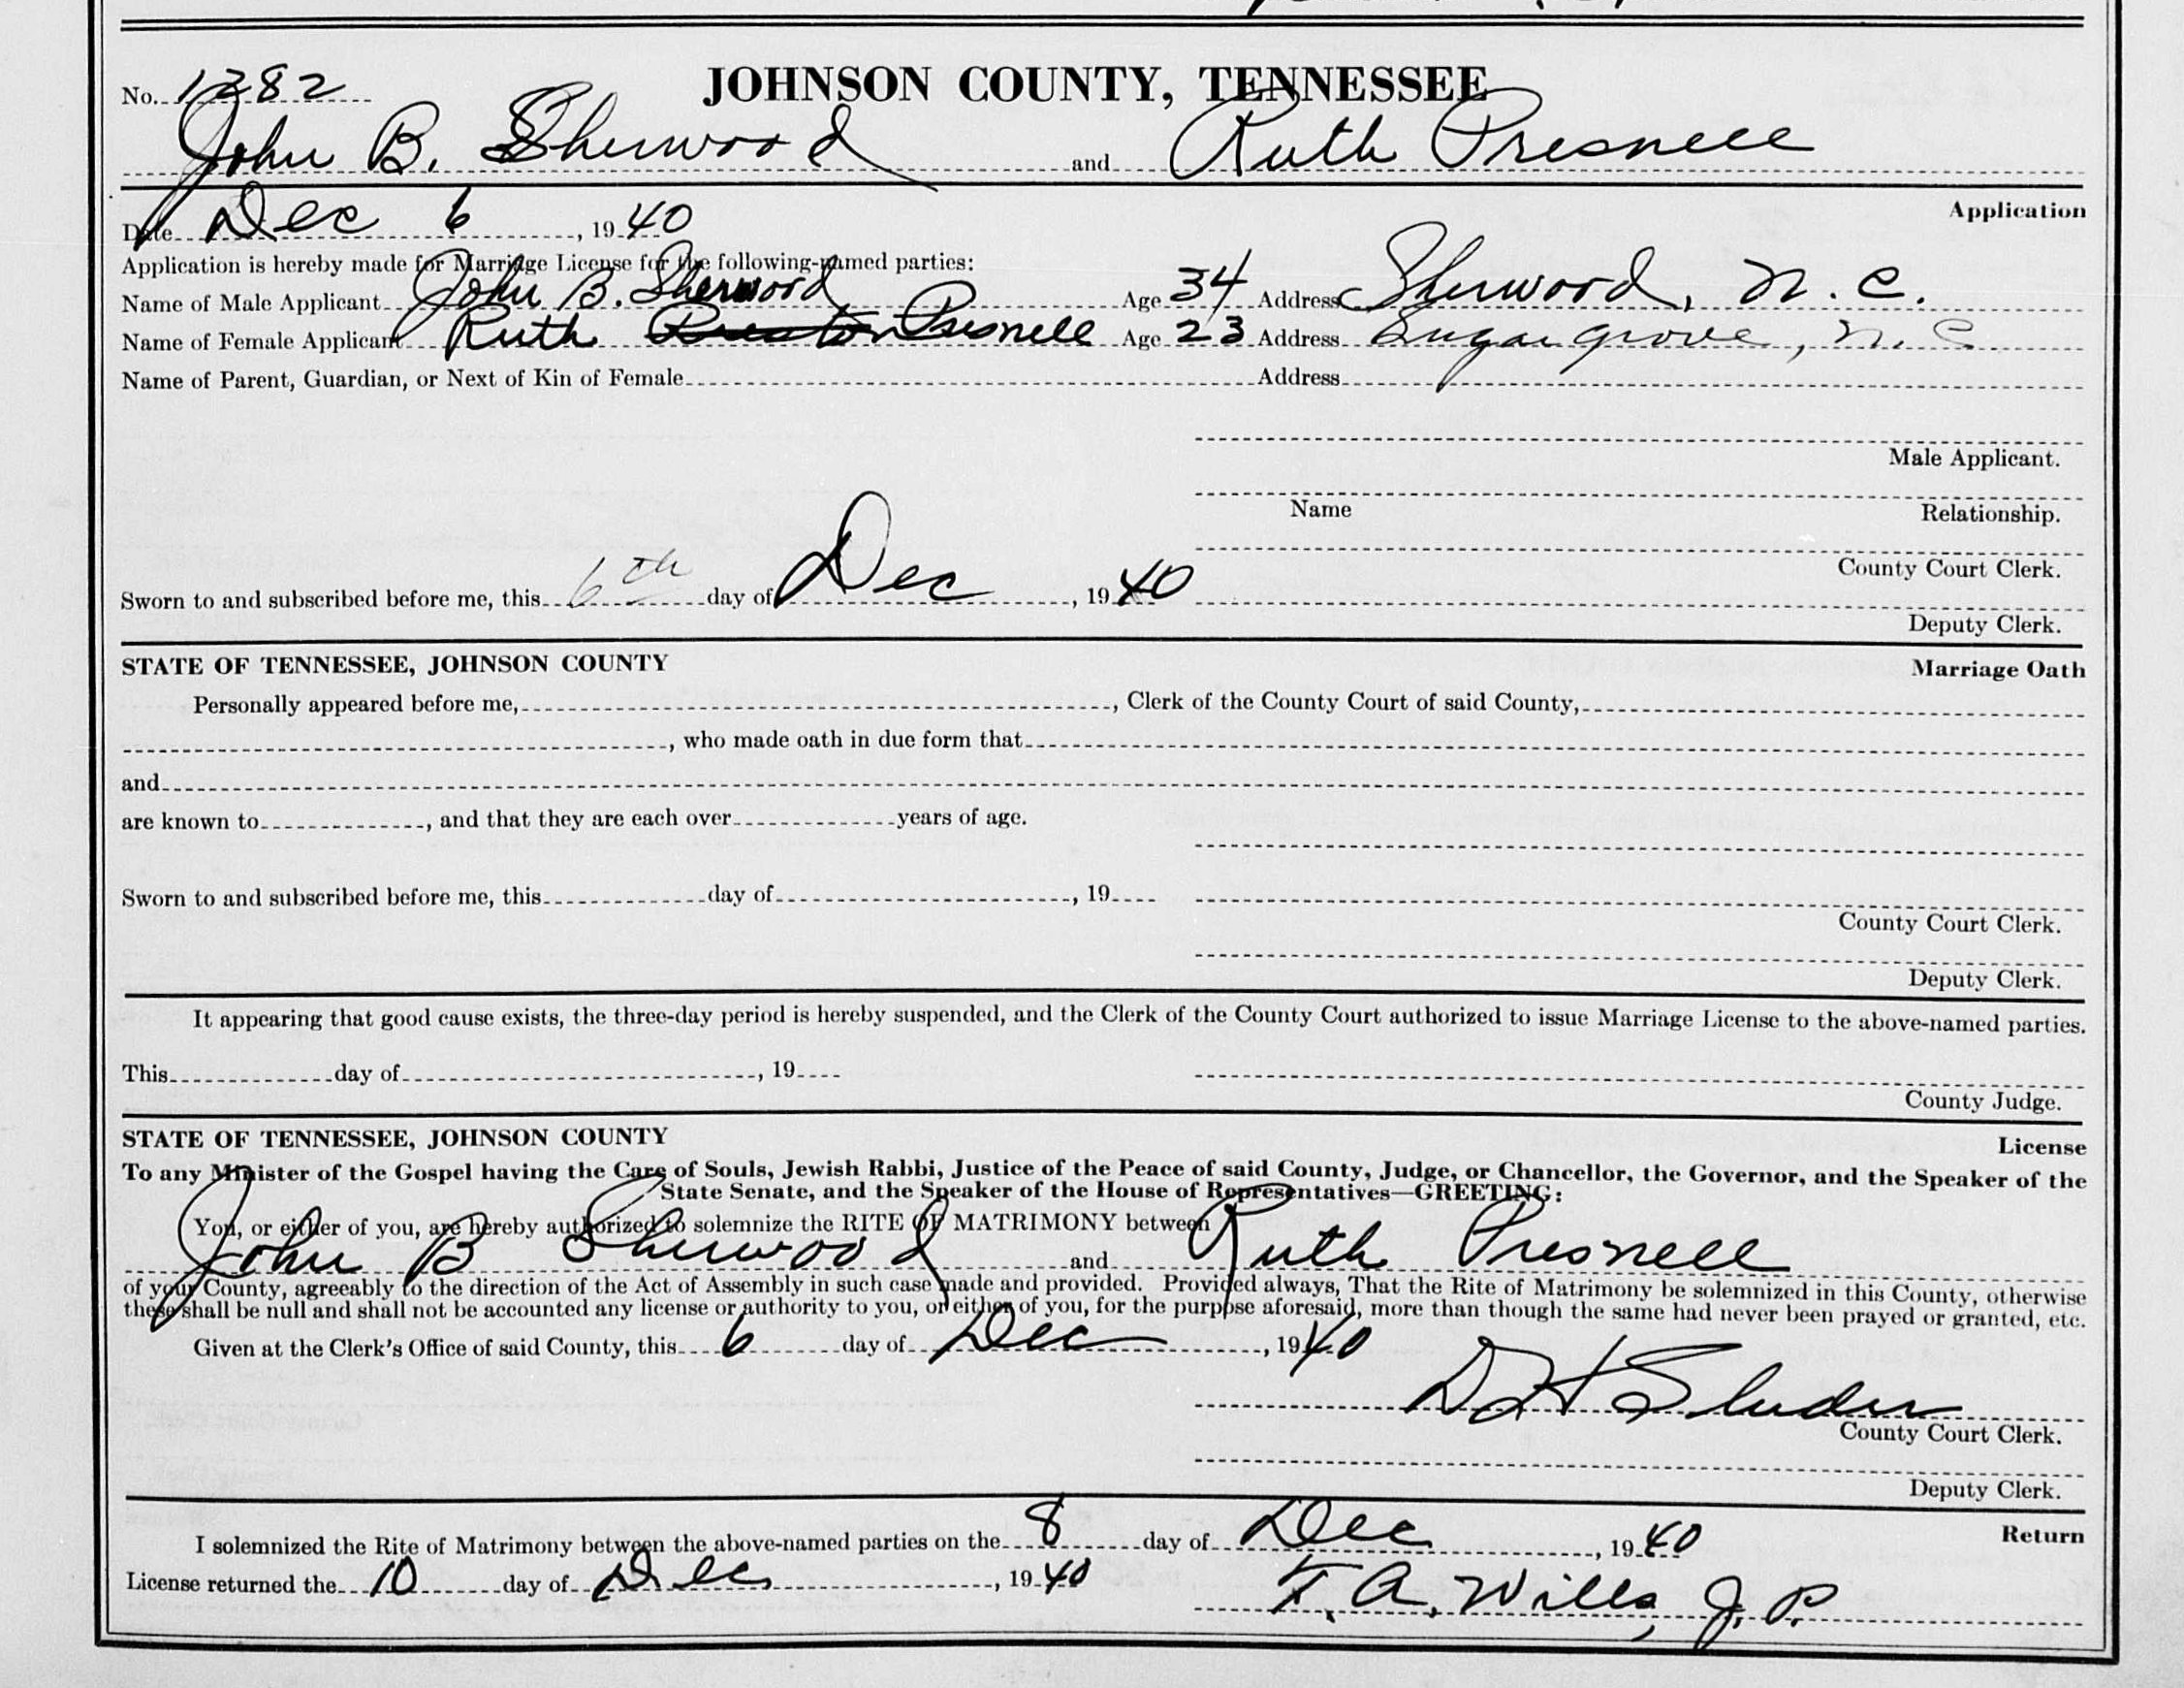 No. 1282 JOHNSON COUNTY, TENNESSEE
John B. Sherwood and Ruth Presnell
Application
Date Dec 6, 1940
Application is hereby made for Marriage License for the following-named parties:
Name of Male Applicant John B. Sherwood Age 34 Address Sherwood, N.C.
Name of Female Applicant Ruth Presnell Age 23 Address Sugar grove, N.C.
Name of Parent, Guardian, or Next of Kin of Female Address
Male Applicant.
Name Relationship.
County Court Clerk.
Sworn to and subscribed before me, this 6th day of Dec, 1940
Deputy Clerk.
STATE OF TENNESSEE, JOHNSON COUNTY Marriage Oath
Personally appeared before me, , Clerk of the County Court of said County,
, who made oath in due form that
and
are known to , and that they are each over years of age.
Sworn to and subscribed before me, this day of , 19
County Court Clerk.
Deputy Clerk.
It appearing that good cause exists, the three-day period is hereby suspended, and the Clerk of the County Court authorized to issue Marriage License to the above-named parties.
This day of , 19
County Judge.
STATE OF TENNESSEE, JOHNSON COUNTY License
To any Minister of the Gospel having the Care of Souls, Jewish Rabbi, Justice of the Peace of said County, Judge, or Chancellor, the Governor, and the Speaker of the
State Senate, and the Speaker of the House of Representatives—GREETING:
You, or either of you, are hereby authorized to solemnize the RITE OF MATRIMONY between
John B Sherwood and Ruth Presnell
of your County, agreeably to the direction of the Act of Assembly in such case made and provided. Provided always, That the Rite of Matrimony be solemnized in this County, otherwise
these shall be null and shall not be accounted any license or authority to you, or either of you, for the purpose aforesaid, more than though the same had never been prayed or granted, etc.
Given at the Clerk's Office of said County, this 6 day of Dec, 1940
D H Sluder
County Court Clerk.
Deputy Clerk.
Return
I solemnized the Rite of Matrimony between the above-named parties on the 8 day of Dec, 1940
License returned the 10 day of Dec, 1940
T. A. Wills, J. P.